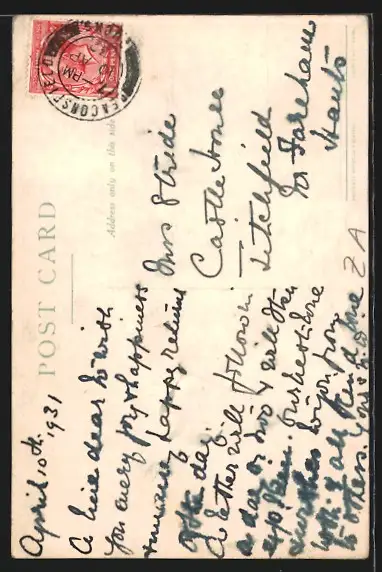 POST CARD
Address only on this side
BEACONSFIELD
PM
AP
April 10th 1931
A line dear to wish
you every joy & happiness
& many happy returns
of the day.
A letter will follow in
a day or two & will then
explain. Our best love
& wishes to you from
us all
to others. Yours
Miss Stride
Castle
Titchfield
Nr Fareham
Hants